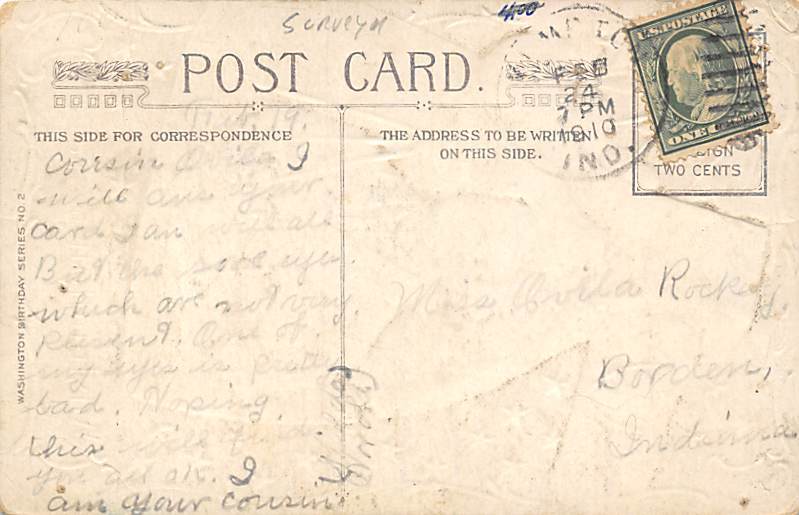 SURVEYN
4.00
POST CARD.
FEB
24
7 PM
1910
IND.
U.S. POSTAGE
ONE
TWO CENTS
THIS SIDE FOR CORRESPONDENCE
THE ADDRESS TO BE WRITTEN
ON THIS SIDE.
WASHINGTON BIRTHDAY SERIES NO. 2
Feb. 19.
Cousin Ovila I
will ans your
card I an well all
But the sore eyes.
which are not very
plesent. One of
my eyes is pretty
bad. Hoping
this will find
you all ok. I
am your cousin
Miss Ovila Rockey.
Borden,
Indiana